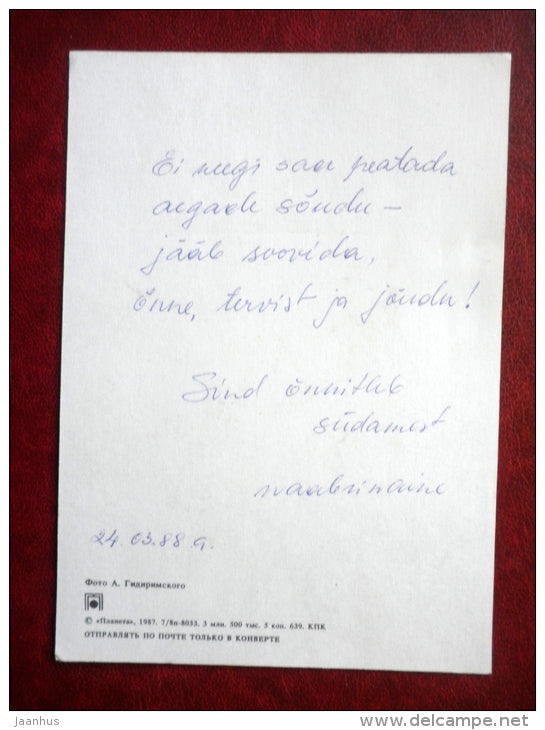 Ei keegi saa peatada
aegade sõudu –
jääb soovida,
õnne, tervist ja jõudu!
Sind õnnitleb
südamest
naabrinaine
24.03.88 a.
Фото А. Гидиримского
© «Планета», 1987. 7/8п-8033. 3 млн. 500 тыс. 5 коп. 639. КПК
ОТПРАВЛЯТЬ ПО ПОЧТЕ ТОЛЬКО В КОНВЕРТЕ
jaanhus
www.delcampe.net